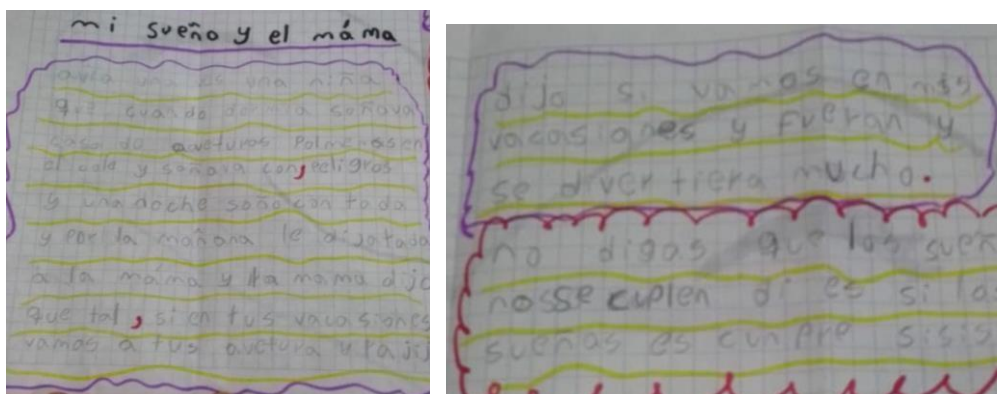 mi sueño y el máma
avia una ves una niña
que cuando dormia soñava
cosa de aveturas
al vole y soñava con peligros
y una noche soño con toda
y por la mañana le dijo toda
a la máma y la mama dijo
que tal, si en tus vacasiones
vamos a tus avetura y la
dijo si vamos en mis
vacasiones y fueran y
se divertiera mucho.
no digas que los sueñ
nosse cuplen di es si lo
sueñas es cunpre sisis